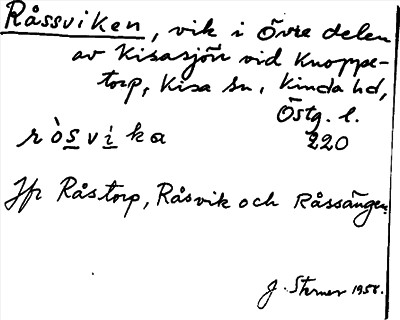 Råssviken, vik i övre delen
av Kisasjön vid Knoppe-
torp, Kisa sn, Kinda hd,
Östg. l.
ròsvika 220
Jfr Råstorp, Råsvik och Råssängen.
J. Sterner 1958.